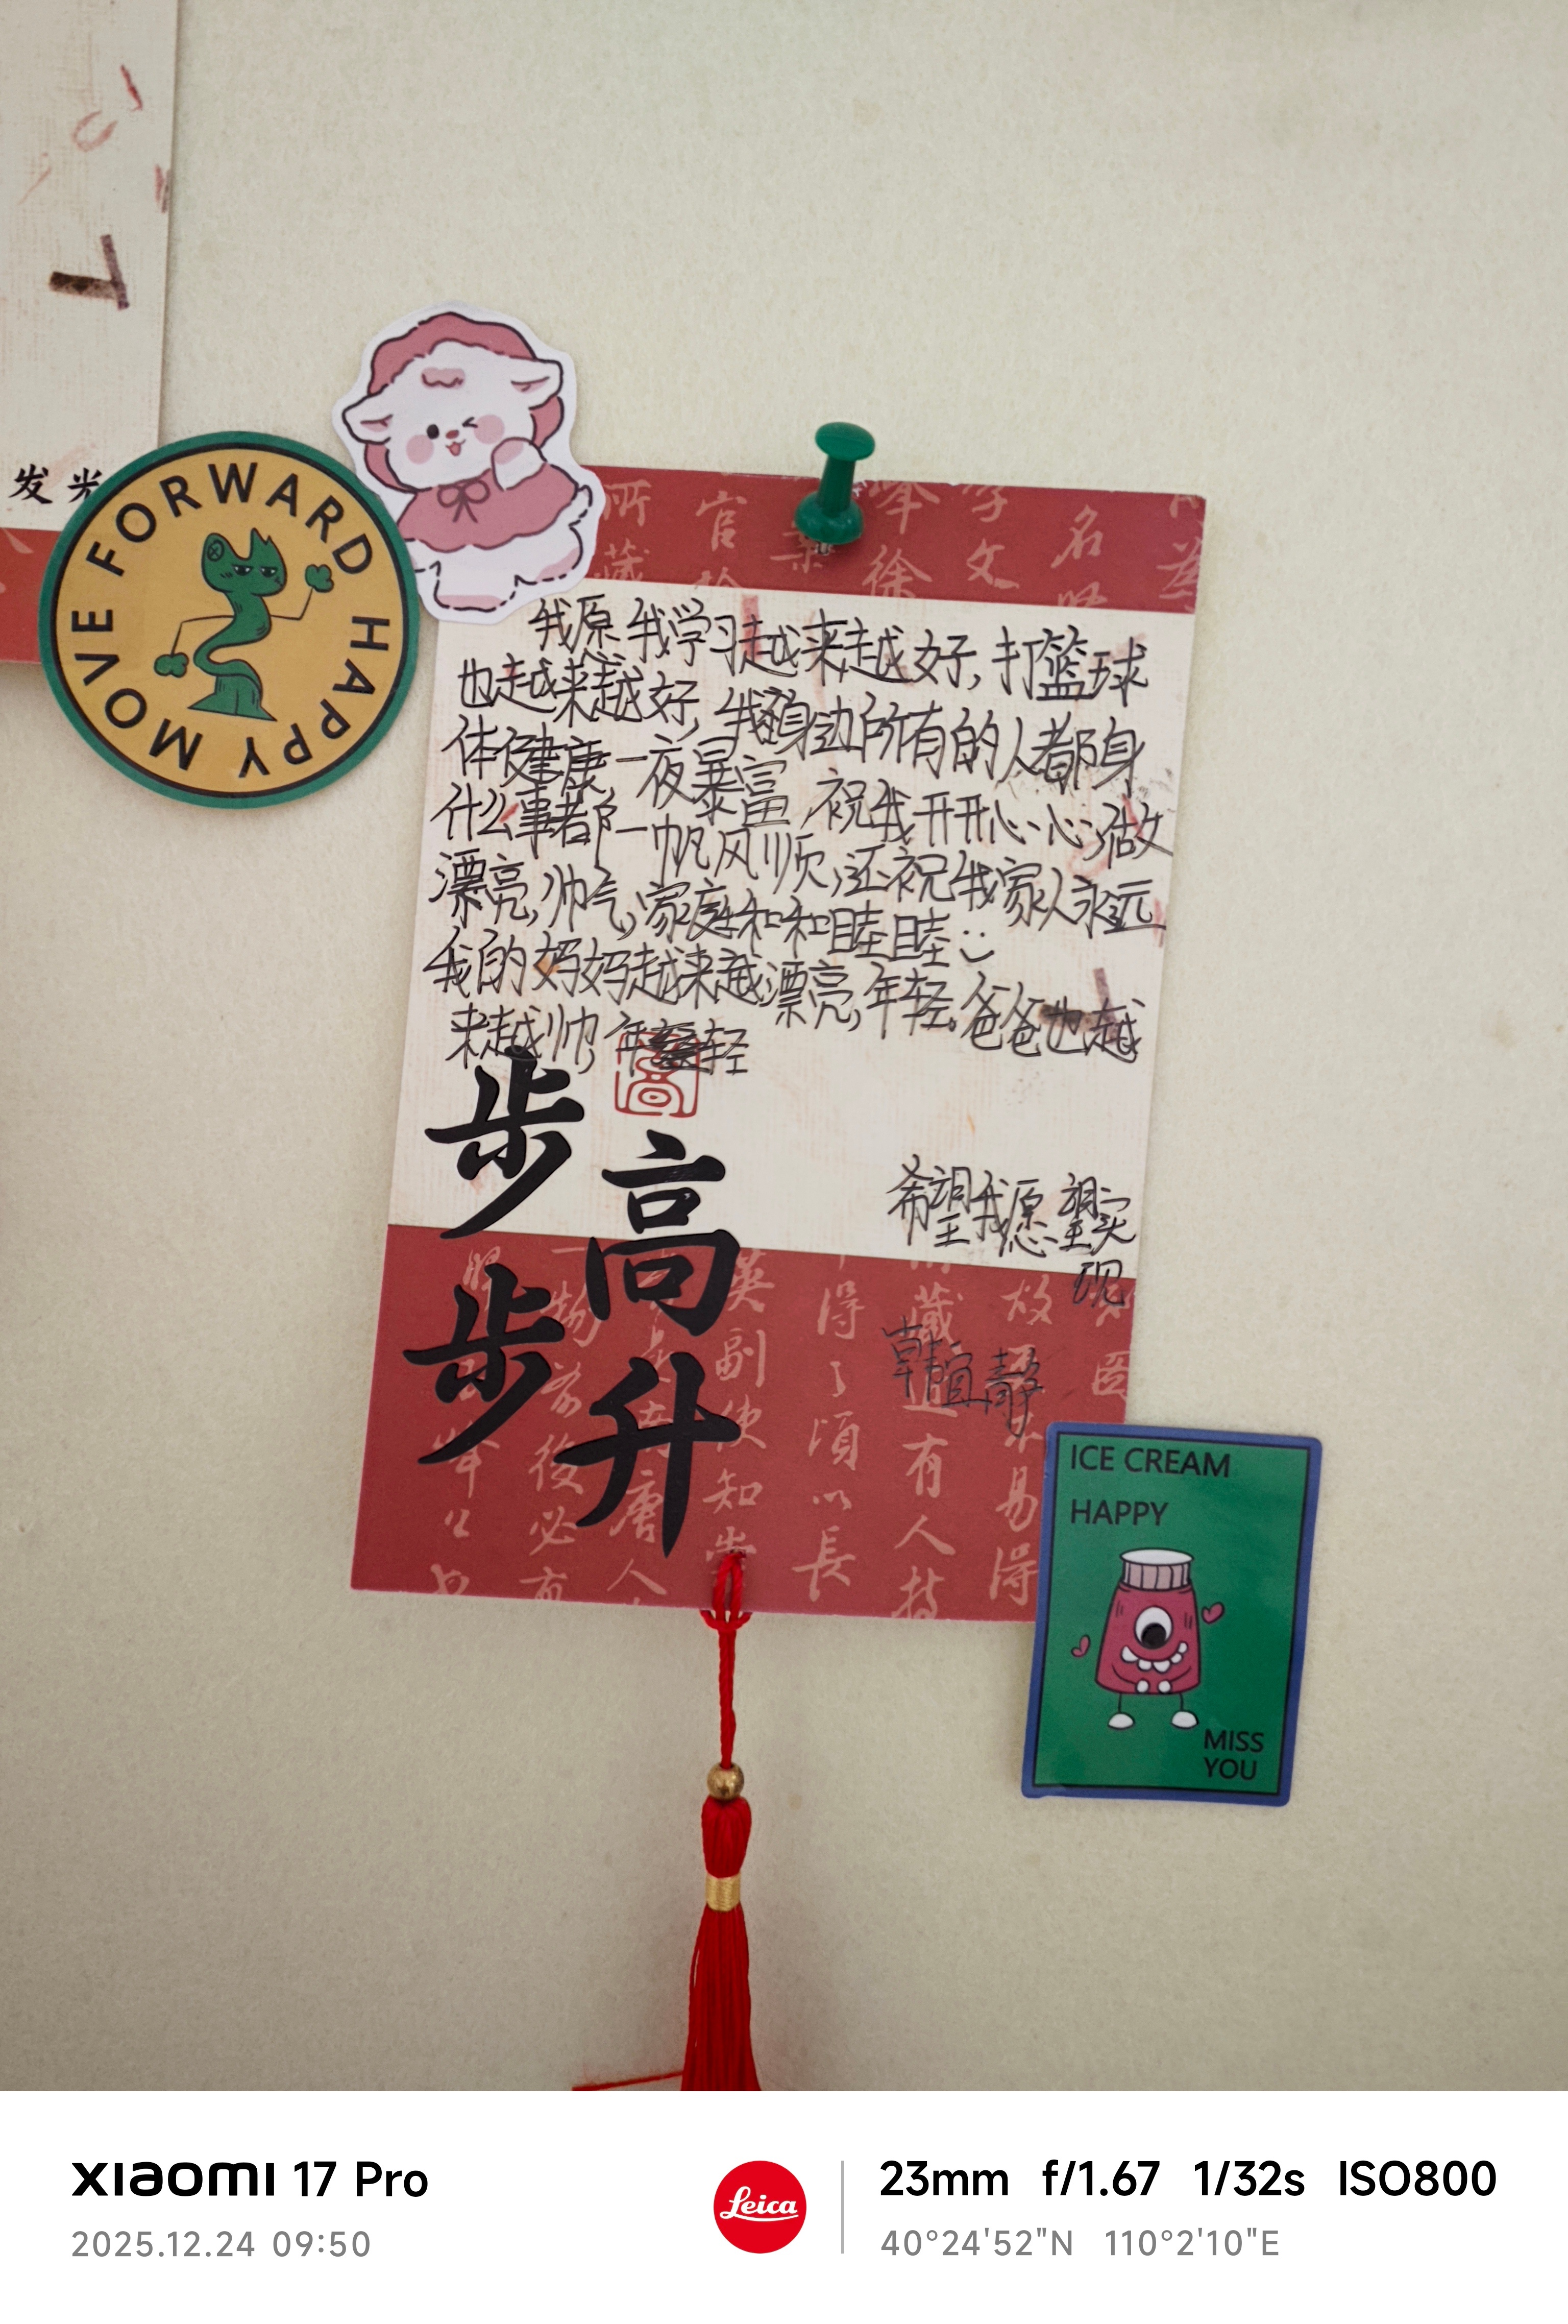 发光
HAPPY MOVE FORWARD
我愿我学习越来越好,打篮球
也越来越好,我身边所有的人都身
体健康一夜暴富,祝我开开心心,做
什么事都一帆风顺,还祝我家人永远
漂亮,帅气,家庭和和睦睦:)
我的妈妈越来越漂亮,年轻,爸爸也越
来越帅,年轻
步步
高升
希望我愿望实
现
韩宜静
所藏
官
徐
文
名
英副使知
得了頃以長
有人持
易得
後必有
唐人
ICE CREAM
HAPPY
MISS
YOU
xiaomi 17 Pro
2025.12.24 09:50
Leica
23mm f/1.67 1/32s ISO800
40°24'52"N 110°2'10"E